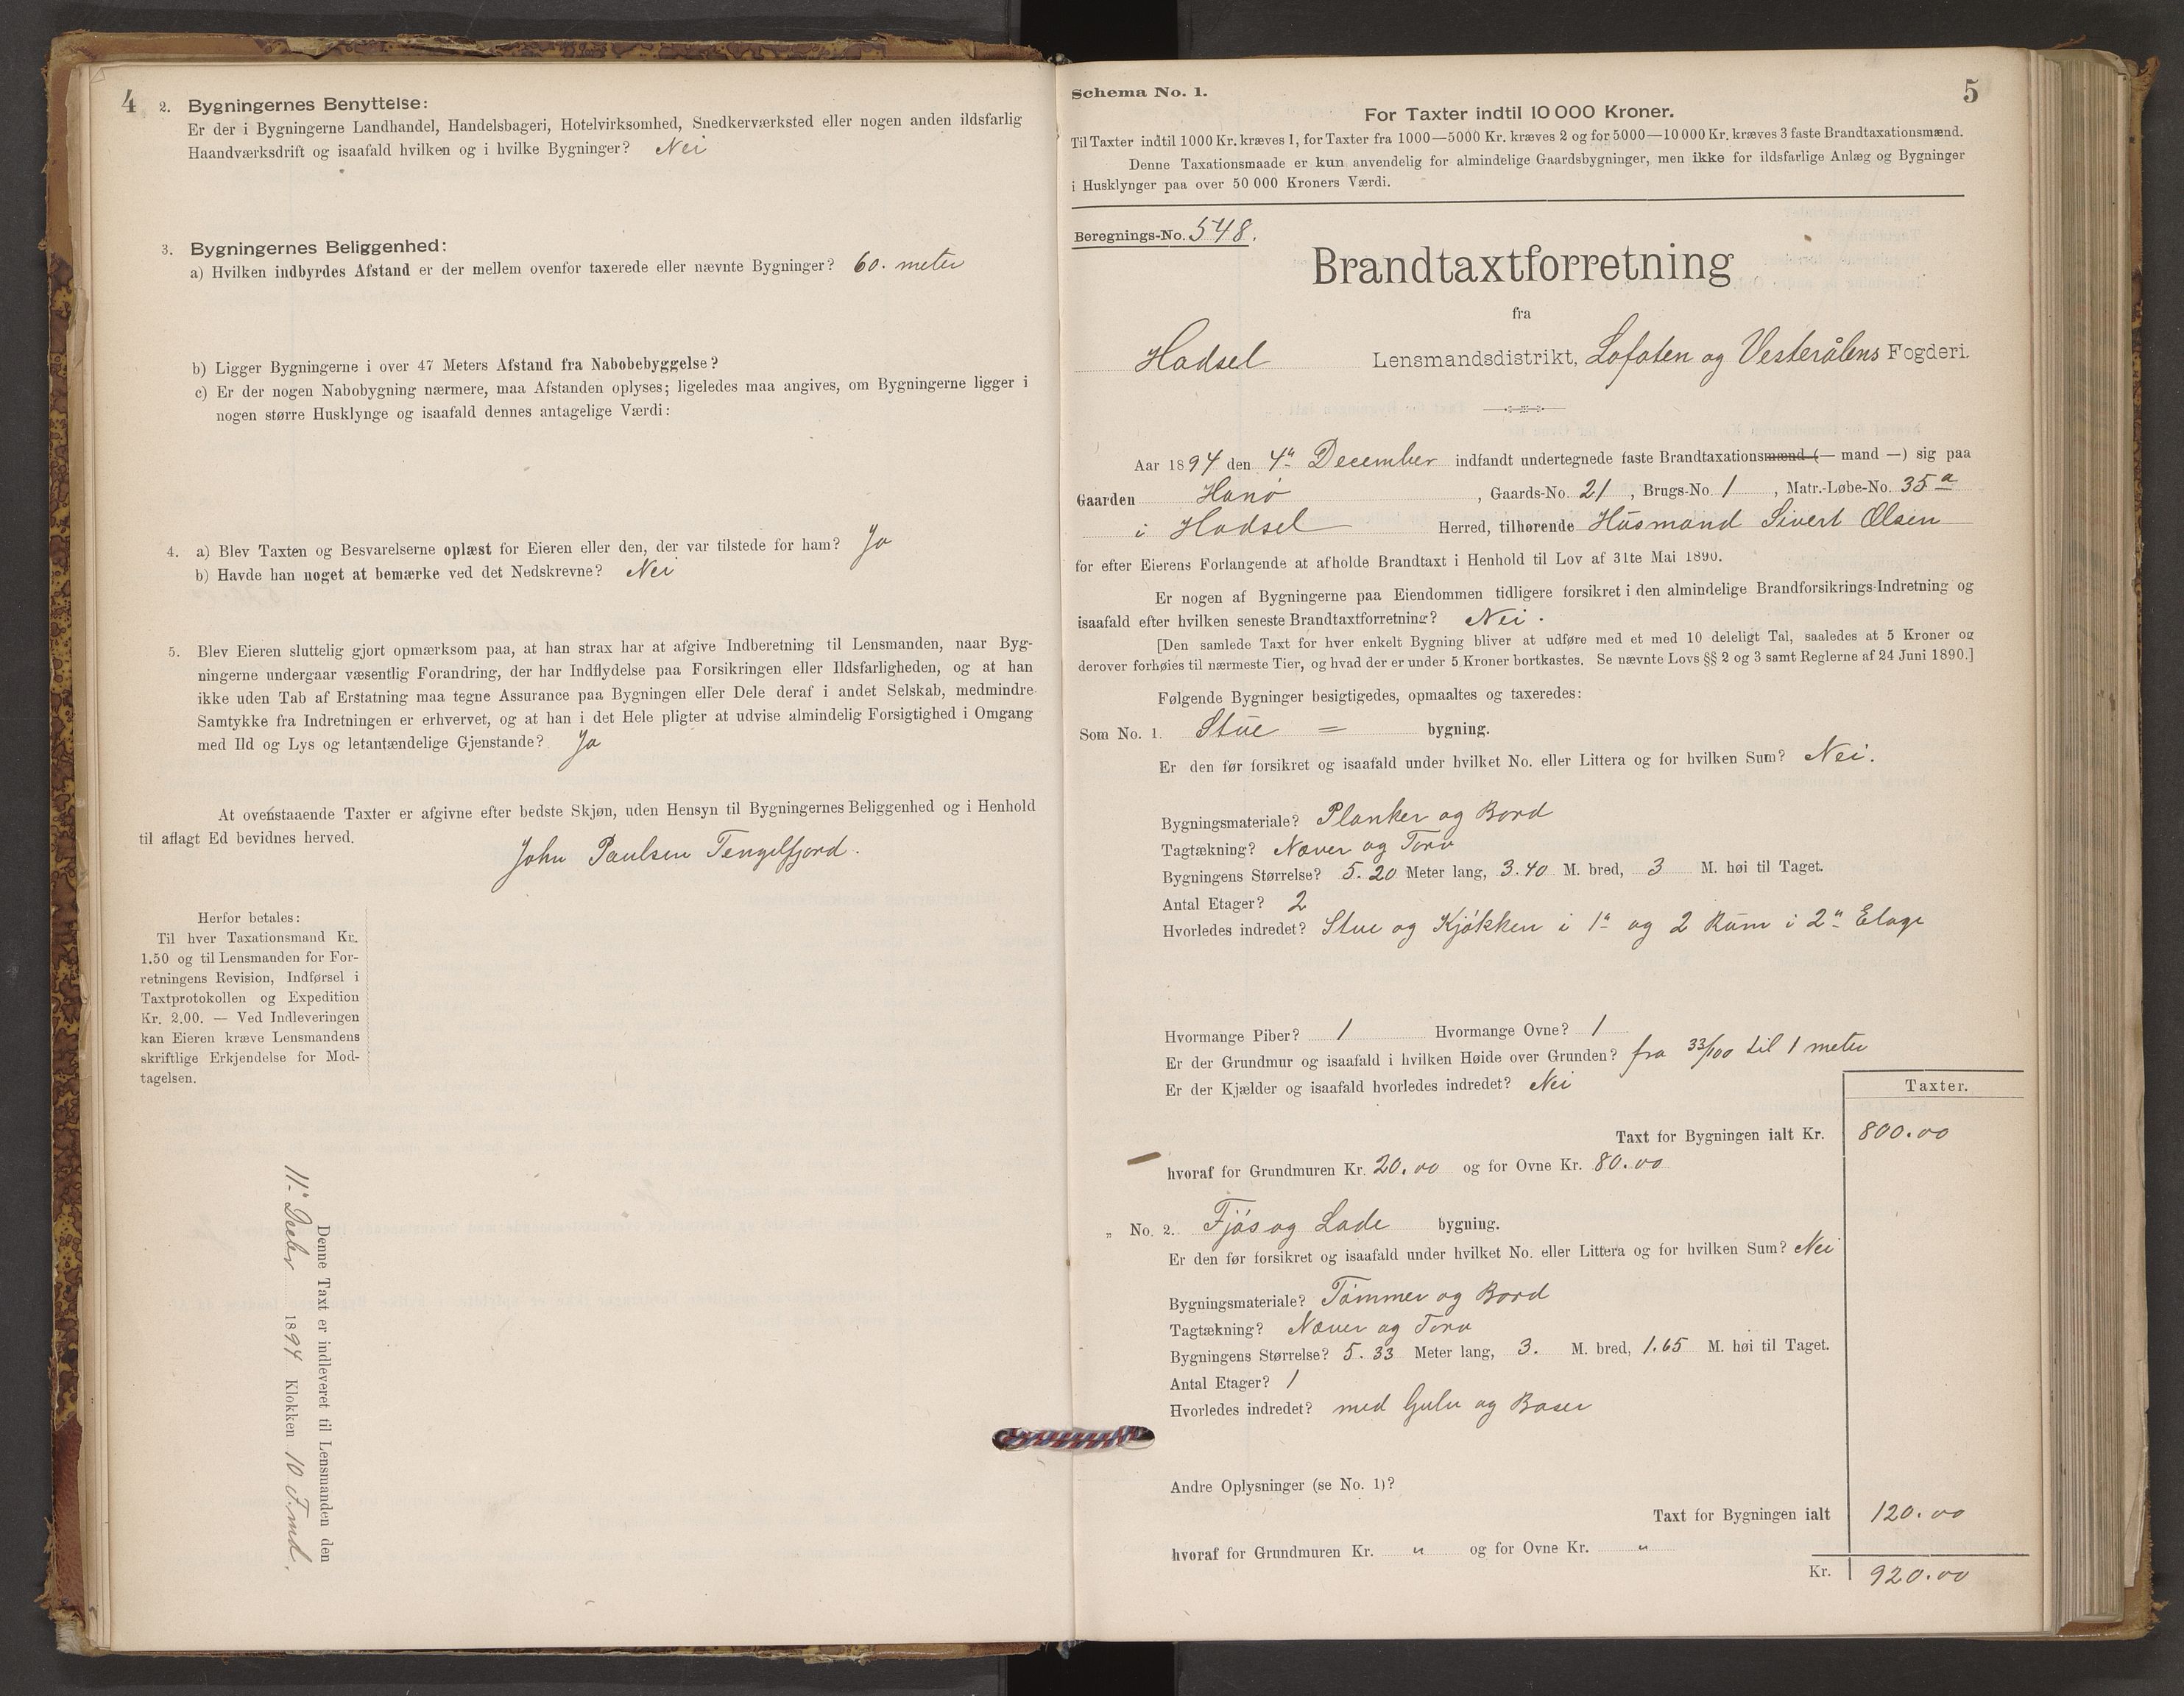 4
2. Bygningernes Benyttelse:
Er der i Bygningerne Landhandel, Handelsbageri, Hotelvirksomhed, Snedkerværksted eller nogen anden ildsfarlig
Haandværksdrift og isaafald hvilken og i hvilke Bygninger? Nei
3. Bygningernes Beliggenhed:
a) Hvilken indbyrdes Afstand er der mellem ovenfor taxerede eller nævnte Bygninger? 60. meter
b) Ligger Bygningerne i over 47 Meters Afstand fra Nabobebyggelse?
c) Er der nogen Nabobygning nærmere, maa Afstanden oplyses; ligeledes maa angives, om Bygningerne ligger i
nogen større Husklynge og isaafald dennes antagelige Værdi:
4. a) Blev Taxten og Besvarelserne oplæst for Eieren eller den, der var tilstede for ham? Ja
b) Havde han noget at bemærke ved det Nedskrevne? Nei
5. Blev Eieren sluttelig gjort opmærksom paa, at han strax har at afgive Indberetning til Lensmanden, naar Byg-
ningerne undergaar væsentlig Forandring, der har Indflydelse paa Forsikringen eller Ildsfarligheden, og at han
ikke uden Tab af Erstatning maa tegne Assurance paa Bygningen eller Dele deraf i andet Selskab, medmindre
Samtykke fra Indretningen er erhvervet, og at han i det Hele pligter at udvise almindelig Forsigtighed i Omgang
med Ild og Lys og letantændelige Gjenstande? Ja
At ovenstaaende Taxter er afgivne efter bedste Skjøn, uden Hensyn til Bygningernes Beliggenhed og i Henhold
til aflagt Ed bevidnes herved.
John Paulsen Tengelfjord.
Herfor betales:
Til hver Taxationsmand Kr.
1.50 og til Lensmanden for For-
retningens Revision, Indførsel i
Taxtprotokollen og Expedition
Kr. 2.00. — Ved Indleveringen
kan Eieren kræve Lensmandens
skriftlige Erkjendelse for Mod-
tagelsen.
Denne Taxt er indleveret til Lensmanden den
11te Decbr 1894 Klokken 10 F.md.
5
Schema No. 1.
For Taxter indtil 10 000 Kroner.
Til Taxter indtil 1000 Kr. kræves 1, for Taxter fra 1000—5000 Kr. kræves 2 og for 5000—10 000 Kr. kræves 3 faste Brandtaxationsmænd.
Denne Taxationsmaade er kun anvendelig for almindelige Gaardsbygninger, men ikke for ildsfarlige Anlæg og Bygninger
i Husklynger paa over 50 000 Kroners Værdi.
Beregnings-No. 548.
Brandtaxtforretning
fra
Hadsel Lensmandsdistrikt, Lofoten og Vesterålens Fogderi.
Aar 1894 den 4de December indfandt undertegnede faste Brandtaxationsmænd (— mand —) sig paa
Gaarden Hanø, Gaards-No. 21, Brugs-No. 1, Matr.-Løbe-No. 35a
i Hadsel Herred, tilhørende Husmand Sivert Olsen
for efter Eierens Forlangende at afholde Brandtaxt i Henhold til Lov af 31te Mai 1890.
Er nogen af Bygningerne paa Eiendommen tidligere forsikret i den almindelige Brandforsikrings-Indretning og
isaafald efter hvilken seneste Brandtaxtforretning? Nei.
[Den samlede Taxt for hver enkelt Bygning bliver at udføre med et med 10 deleligt Tal, saaledes at 5 Kroner og
derover forhøies til nærmeste Tier, og hvad der er under 5 Kroner bortkastes. Se nævnte Lovs §§ 2 og 3 samt Reglerne af 24 Juni 1890.]
Følgende Bygninger besigtigedes, opmaaltes og taxeredes:
Som No. 1. Stue = bygning.
Er den før forsikret og isaafald under hvilket No. eller Littera og for hvilken Sum? Nei.
Bygningsmateriale? Planker og Bord
Tagtækning? Næver og Torv
Bygningens Størrelse? 5.20 Meter lang, 3.40 M. bred, 3 M. høi til Taget.
Antal Etager? 2
Hvorledes indredet? Stue og Kjøkken i 1ste og 2 Rum i 2den Etage
Hvormange Piber? 1 Hvormange Ovne? 1
Er der Grundmur og isaafald i hvilken Høide over Grunden? fra 33/100 til 1 meter
Er der Kjælder og isaafald hvorledes indredet? Nei
Taxter.
Taxt for Bygningen ialt Kr. 800.00
hvoraf for Grundmuren Kr. 20.00 og for Ovne Kr. 80.00
„ No. 2. Fjøs og Lade bygning.
Er den før forsikret og isaafald under hvilket No. eller Littera og for hvilken Sum? Nei
Bygningsmateriale? Tømmer og Bord
Tagtækning? Næver og Torv
Bygningens Størrelse? 5.33 Meter lang, 3. M. bred, 1.65 M. høi til Taget.
Antal Etager? 1
Hvorledes indredet? med Gulv og Baser
Andre Oplysninger (se No. 1)?
Taxt for Bygningen ialt 120.00
hvoraf for Grundmuren Kr. " og for Ovne Kr. "
Kr. 920.00